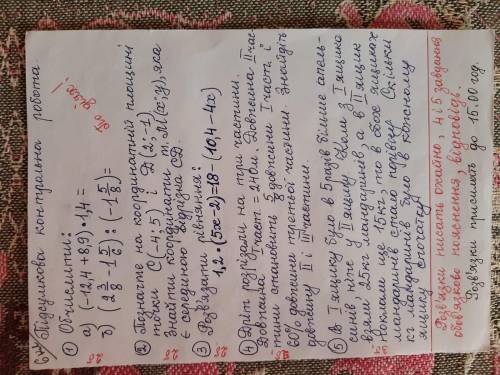 6 кл Підсумкова контрольна робота.
① Обчислити:
а) (-12,4 + 8,9) · 1,4 =
б) (2 3/8 - 1 5/6) : (-1 5/8) =
По діях!
② Позначте на координатній площині
точки С(-4; 5) і D(2; -1)
знайти координати т. М(х; у), яка
є серединою відрізка СD.
③ Розв'язати рівняння:
1,2 · (5х - 2) = 18 - (10,4 - 4х)
④ Дріт розрізали на три частини.
Довжина І част. = 240м. Довжина ІІ час-
тини становить довжини І част. і
60% довжини третьої частини. Знайдіть
довжину ІІ і ІІІ частини.
⑤ В І ящику було в 5 разів більше апель-
синів, ніж у ІІ ящику. Коли з І ящика
взяли 25кг мандаринів, а в ІІ ящик
поклали ще 15кг, то в обох ящиках
мандаринів стало порівну. Скільки
кг мандаринів було в кожному
ящику спочатку
Розв'язки писати охайно, 4 і 5 завдання
обов'язково пояснення, відповідь.
Розв'язки присилати до 15.00 год.